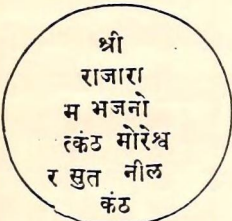 श्री
राजारा
म भजनो
त्कंठ मोरेश्व
र सुत नील
कंठ